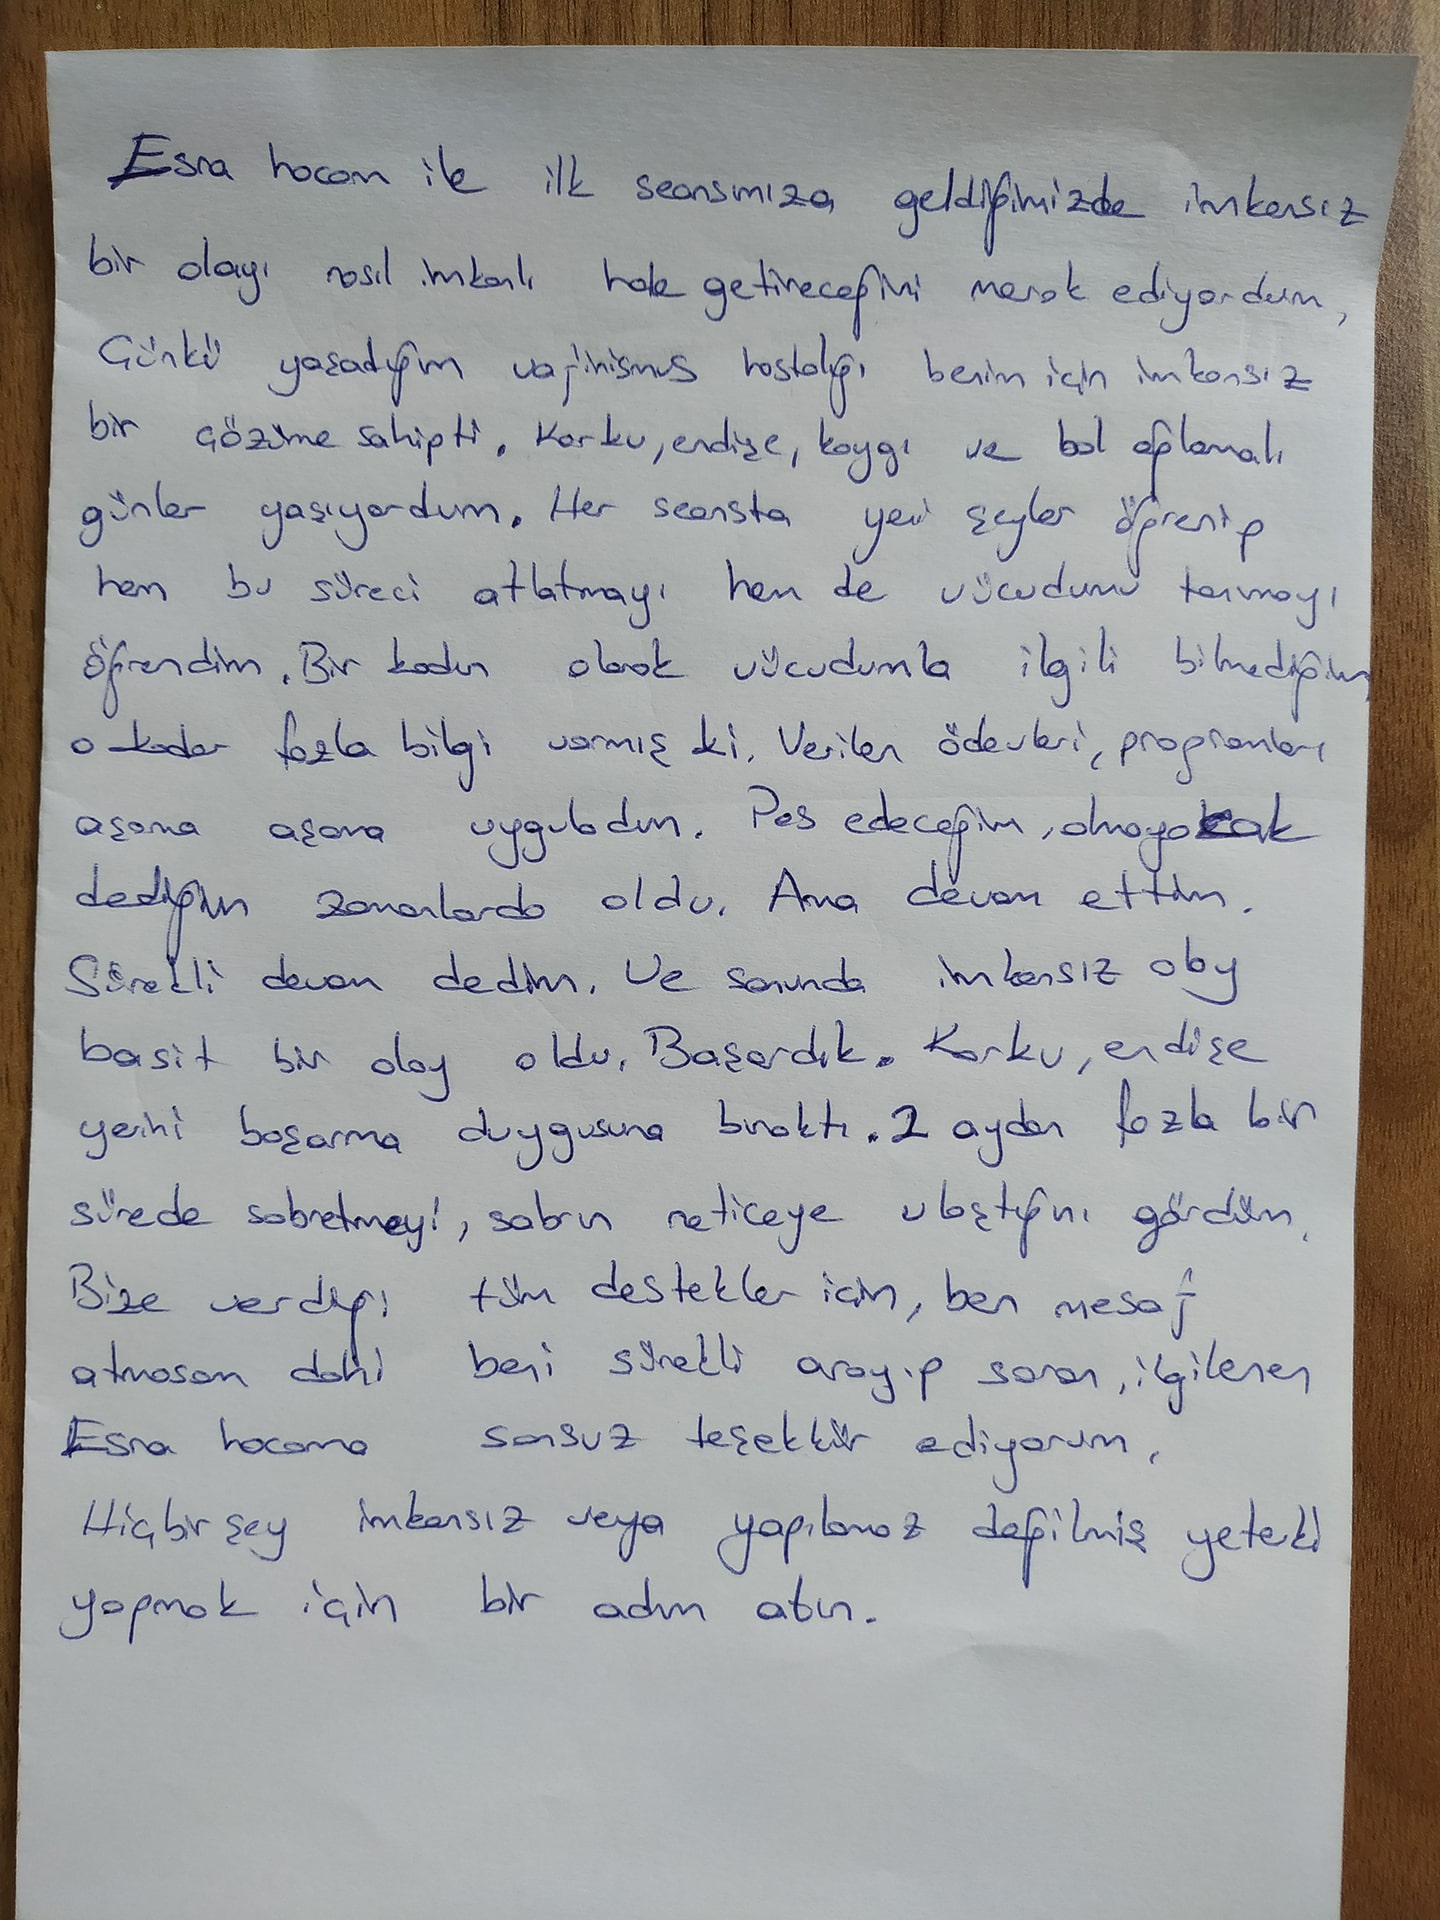 Esra hocam ile ilk seansımıza geldiğimizde imkansız
bir olayı nasıl imkanlı hale getireceğini merak ediyordum,
Çünkü yaşadığım vajinismus hastalığı benim için imkansız
bir çözüme sahipti. Korku, endişe, kaygı ve bol ağlamalı
günler yaşıyordum. Her seansta yeni şeyler öğrenip
hem bu süreci atlatmayı hem de vücudumu tanımayı
öğrendim. Bir kadın olarak vücudumla ilgili bilmediğim
o kadar fazla bilgi varmış ki. Verilen ödevleri, programları
aşama aşama uyguladım. Pes edeceğim, olmayacak
dediğim zamanlarda oldu. Ama devam ettim.
Sürekli devam dedim. Ve sonunda imkansız olay
basit bir olay oldu. Başardık. Korku, endişe
yerini başarma duygusuna bıraktı. 2 aydan fazla bir
sürede sabretmeyi, sabrın neticeye ulaştığını gördüm.
Bize verdiği tüm destekler için, ben mesaj
atmasam dahi beni sürekli arayıp soran, ilgilenen
Esra hocama sonsuz teşekkür ediyorum.
Hiçbir şey imkansız veya yapılamaz değilmiş yeterki
yapmak için bir adım atın.